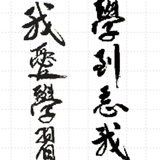 學到忘我
我愛學習